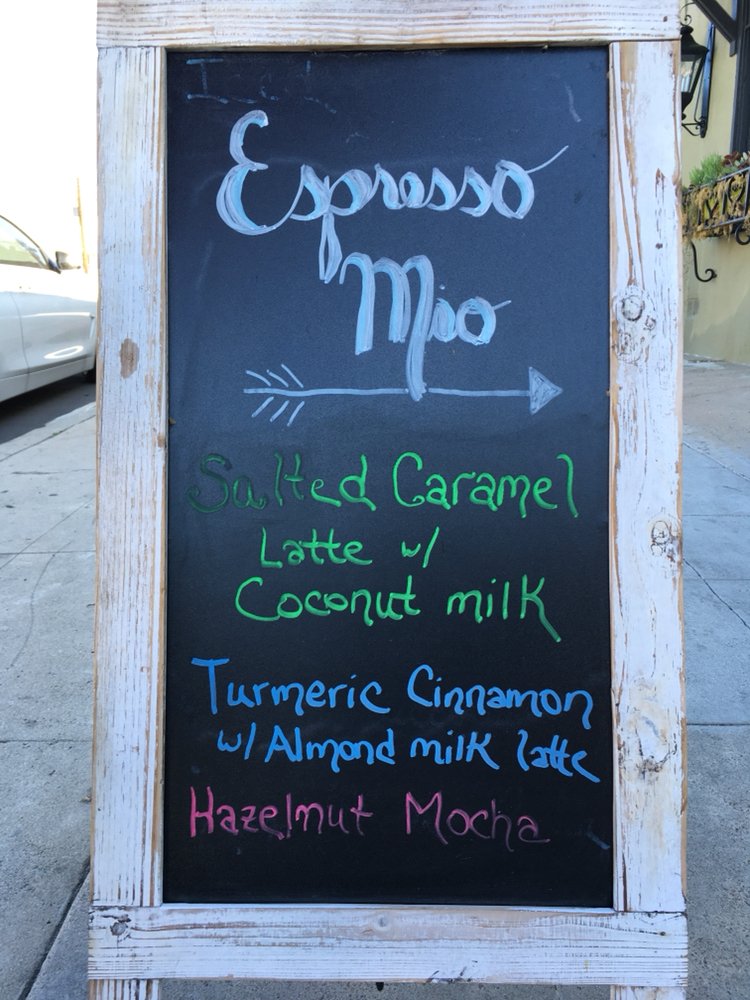 Espresso
Mio
Salted Caramel
Latte w/
Coconut milk
Turmeric Cinnamon
w/ Almond milk latte
Hazelnut Mocha